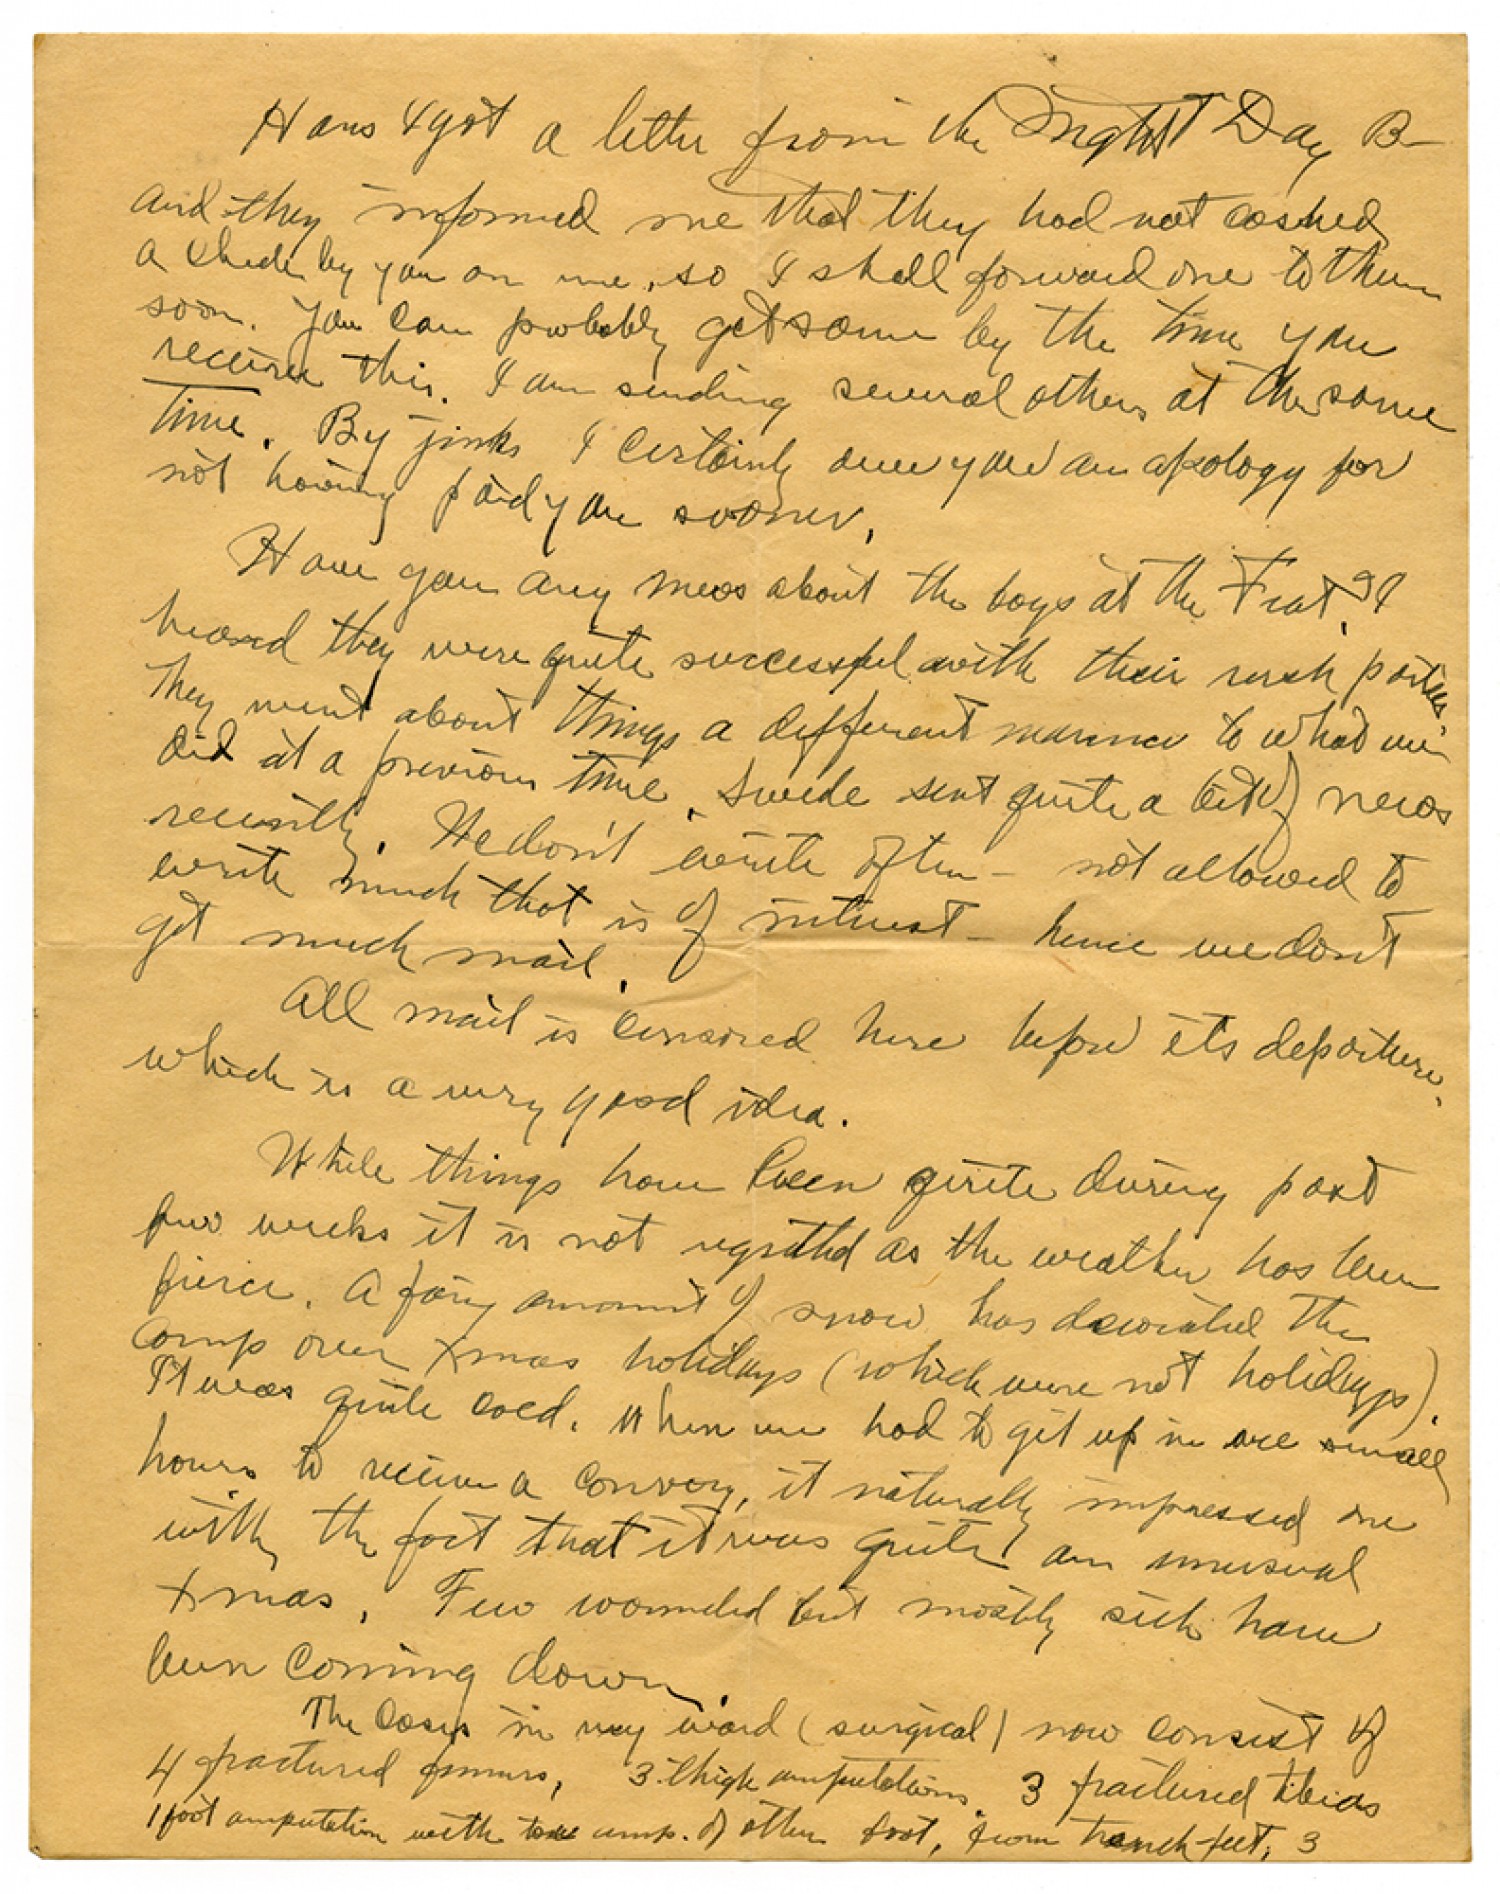 Hans I got a letter from the Night & Day B-
and they informed me that they had not cashed
a check by you on me, so I shall forward one to them
soon. You can probably get some by the time you
receive this. I am sending several others at the same
time. By jinks I certainly owe you an apology for
not having paid you sooner.
Have you any news about the boys at the Frat? I
heard they were quite successful with their rush parties.
They went about things a different manner to what we
did at a previous time. Swede sent quite a bit of news
recently. We don't write often - not allowed to
write much that is of interest - hence we don't
get much mail.
All mail is censored here before its departure,
which is a very good idea.
While things have been quite during past
few weeks it is not regretted as the weather has been
fierce. A fairy amount of snow has decorated the
camp over Xmas holidays (which were not holidays).
It was quite cold. When we had to get up in wee small
hours to receive a convoy, it naturally impressed one
with the fact that it was quite an unusual
Xmas. Few wounded but mostly sick have
been coming down.
The cases in my ward (surgical) now consist of
4 fractured femurs, 3 thigh amputations, 3 fractured tibias
1 foot amputation with toe amp. of other foot, from trench feet, 3